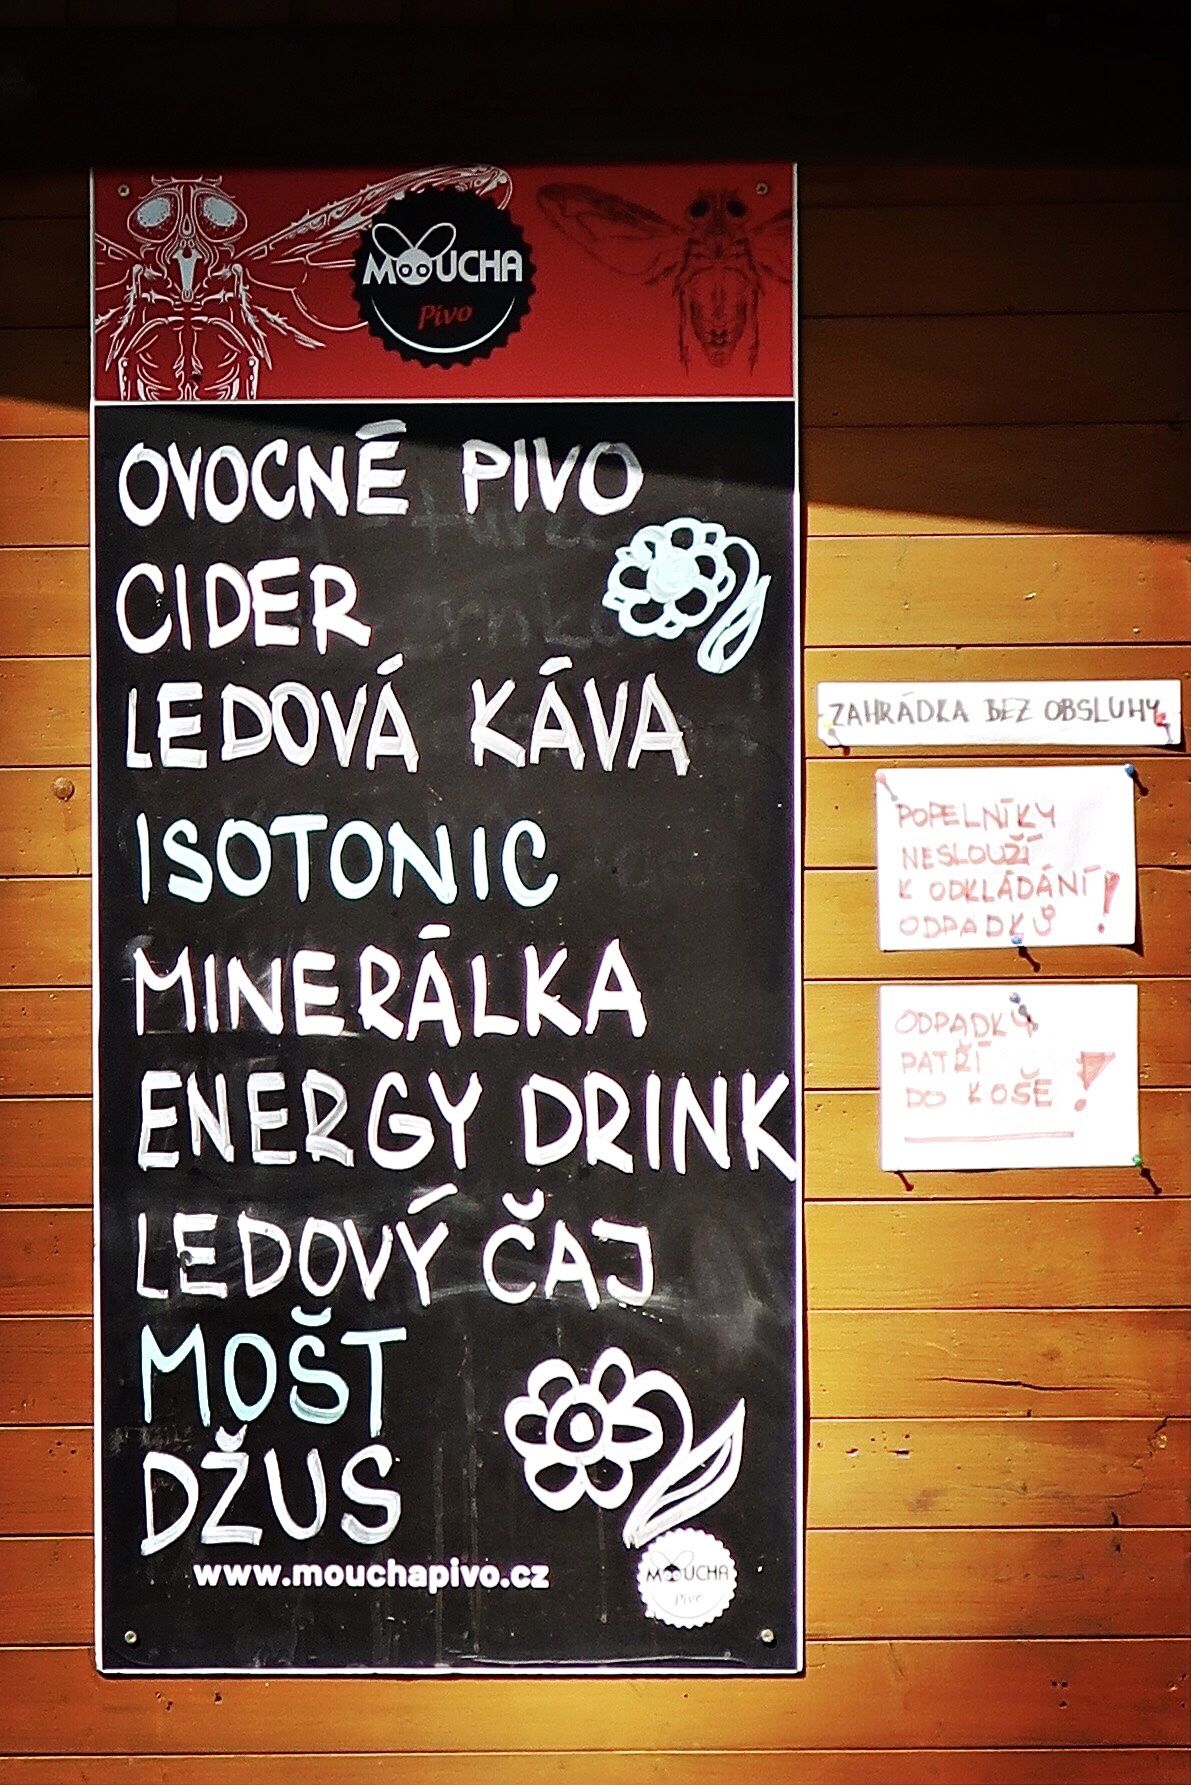 MOUCHA
Pivo
OVOCNÉ PIVO
CIDER
LEDOVÁ KÁVA
ISOTONIC
MINERÁLKA
ENERGY DRINK
LEDOVÝ ČAJ
MOŠT
DŽUS
www.mouchapivo.cz
MOUCHA
Pivo
ZAHRÁDKA BEZ OBSLUHY
POPELNÍKY
NESLOUŽÍ
K ODKLÁDÁNÍ !
ODPADKŮ
ODPADKY
PATŘÍ
DO KOŠE !